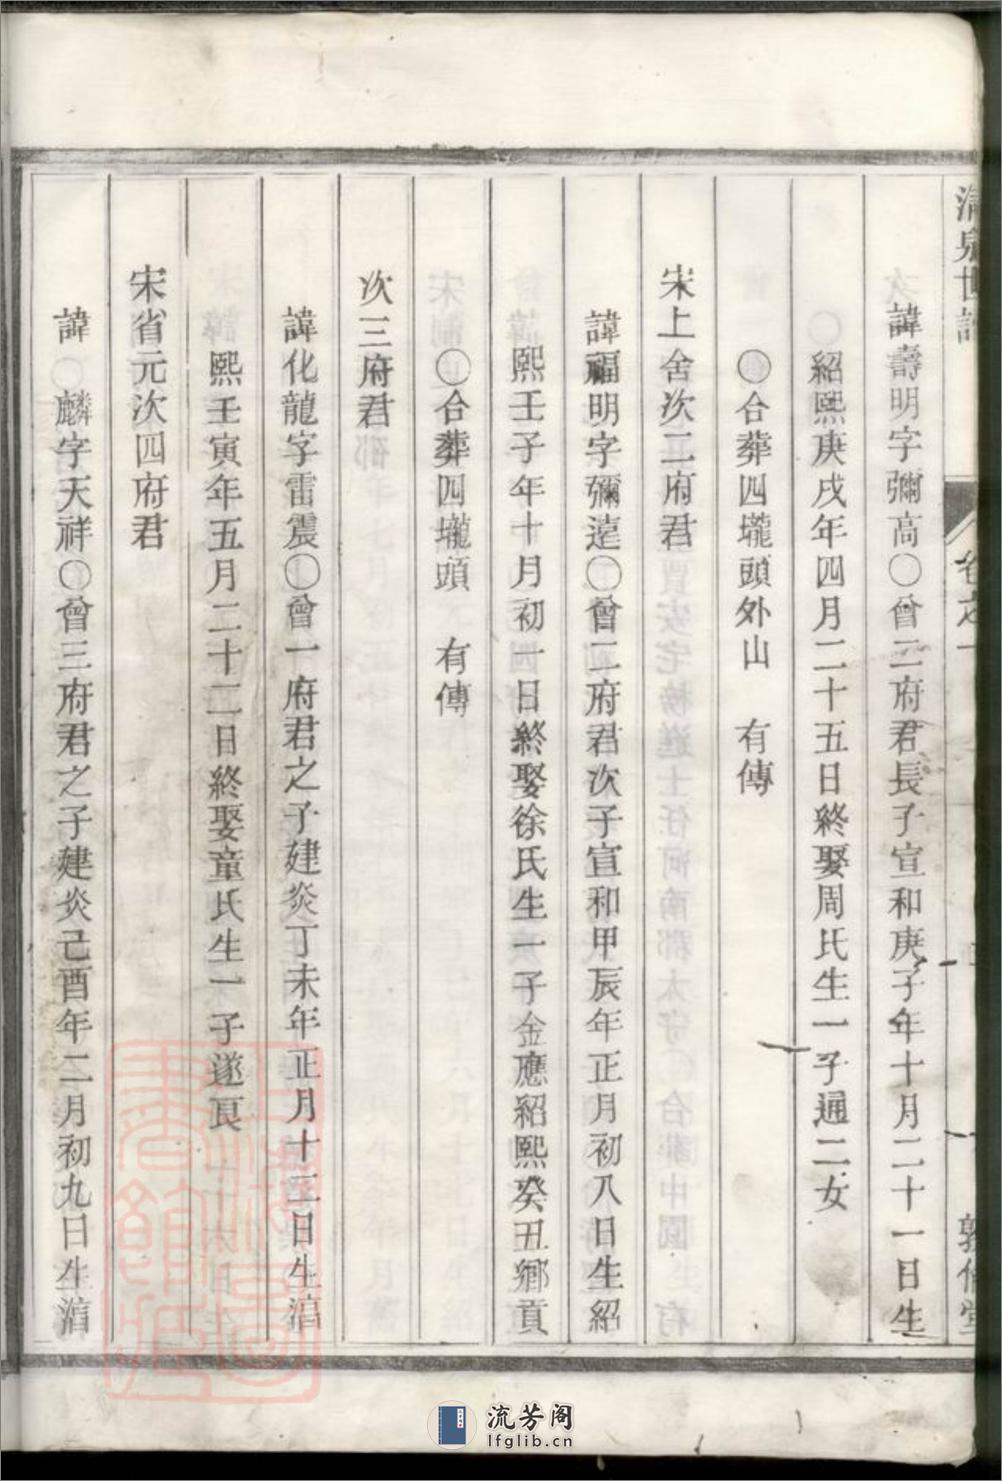 清泉世譜 卷之一
諱壽明字彌高○曾二府君長子宣和庚子年十月二十一日生
紹熙庚戌年四月二十五日終娶周氏生一子通二女
○合葬四壠頭外山 有傳
宋上舍次二府君
諱福明字彌遠○曾二府君次子宣和甲辰年正月初八日生紹
熙壬子年十月初一日終娶徐氏生一子金應紹熙癸丑鄉貢
○合葬四壠頭 有傳
次三府君
諱化龍字雷震○曾一府君之子建炎丁未年正月十三日生淳
熙壬寅年五月二十二日終娶童氏生一子遂良
宋省元次四府君
諱 麟字天祥○曾三府君之子建炎己酉年二月初九日生淳
流芳阁
lfglib.cn